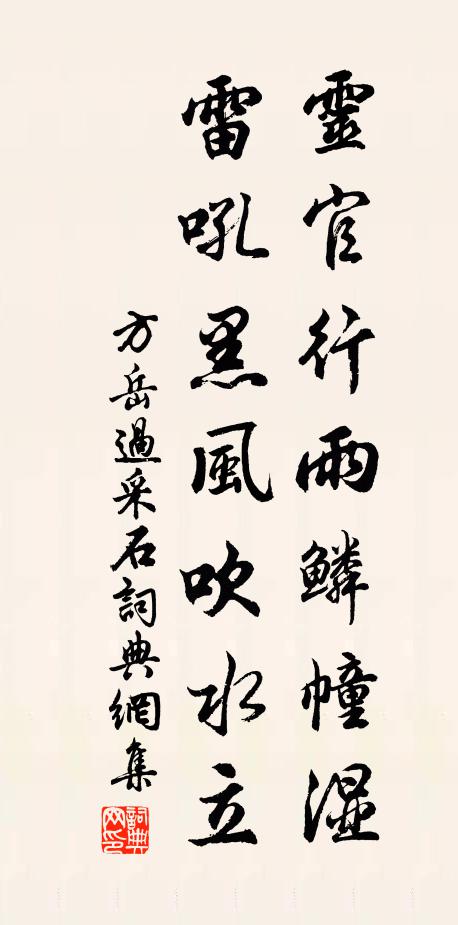 靈官行雨鱗幢濕
雷吼黑風吹水立
方岳過采石詞典網集
詞典網印